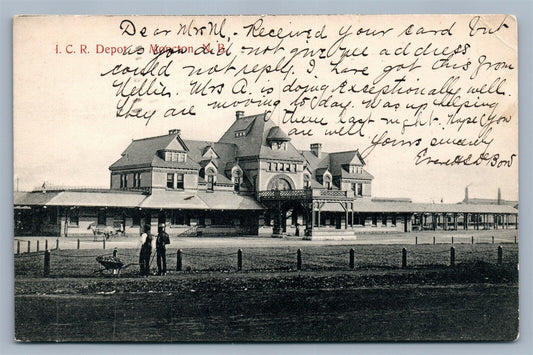 Dear Mr M. Received your card but
I. C. R. Depot, Moncton, N. B.
as you did not give me address
could not reply. I have got this from
Nellie. Mrs A. is doing exceptionally well.
They are moving to day. Was up helping
there last night. Hope you
are well. Yours sincerely